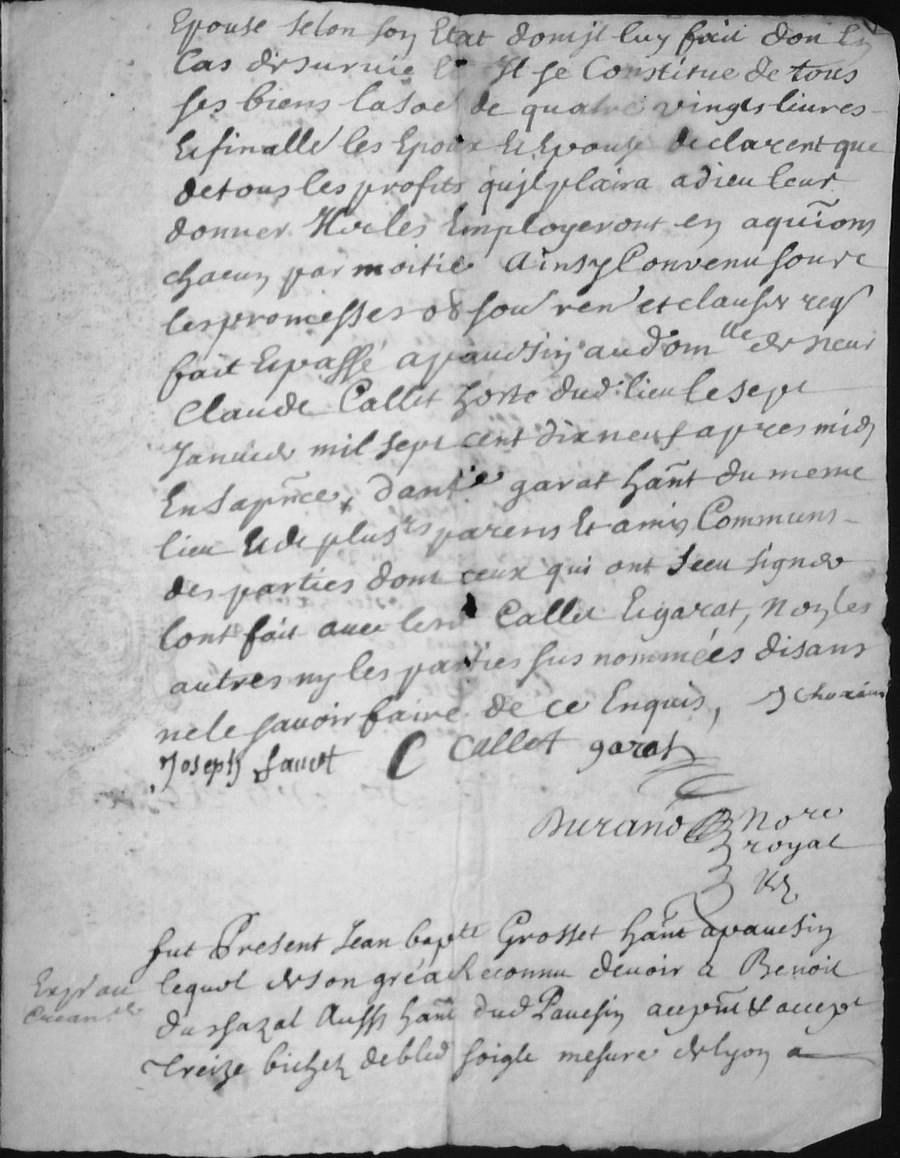 Epouse selon son Etat dont jl luy fait don En
Cas de survie Et Jl se Constitue de tous
ses biens la soe de quatre vingts livres
Et finalle les Epoux Et Epouse declarent que
de tous les profits qujl plaira a dieu leur
donner Jls les Employeront en aquions
chacun par moitié Ainsy Convenu sous
les promesses ob sou ren et clauses req
fait Et passé a pavesin au domlle de sieur
Claude Callet hoste dud. lieu le sept
Janvier mil sept cent dix neuf apres midy
En sa pnce, garat hant du meme
lieu Et de plusrs parens Et amis Communs
des parties dont ceux qui ont sceu signer
lont fait avec lesd Callet Et garat, Non les
autres ny les parties sus nommées disans
ne le savoir faire de ce Enquis,
Joseph C Callet garat
Durand Nore
royal
fut Present Jean bapte Grosset hant a pavesin
lequel de son gré a Reconnu devoir a Benoit
du chazal Aussy hant dud Pavesin acepnt & accept
Treize bichetz de bled soigle mesure de lyon a
Exp au
Crean